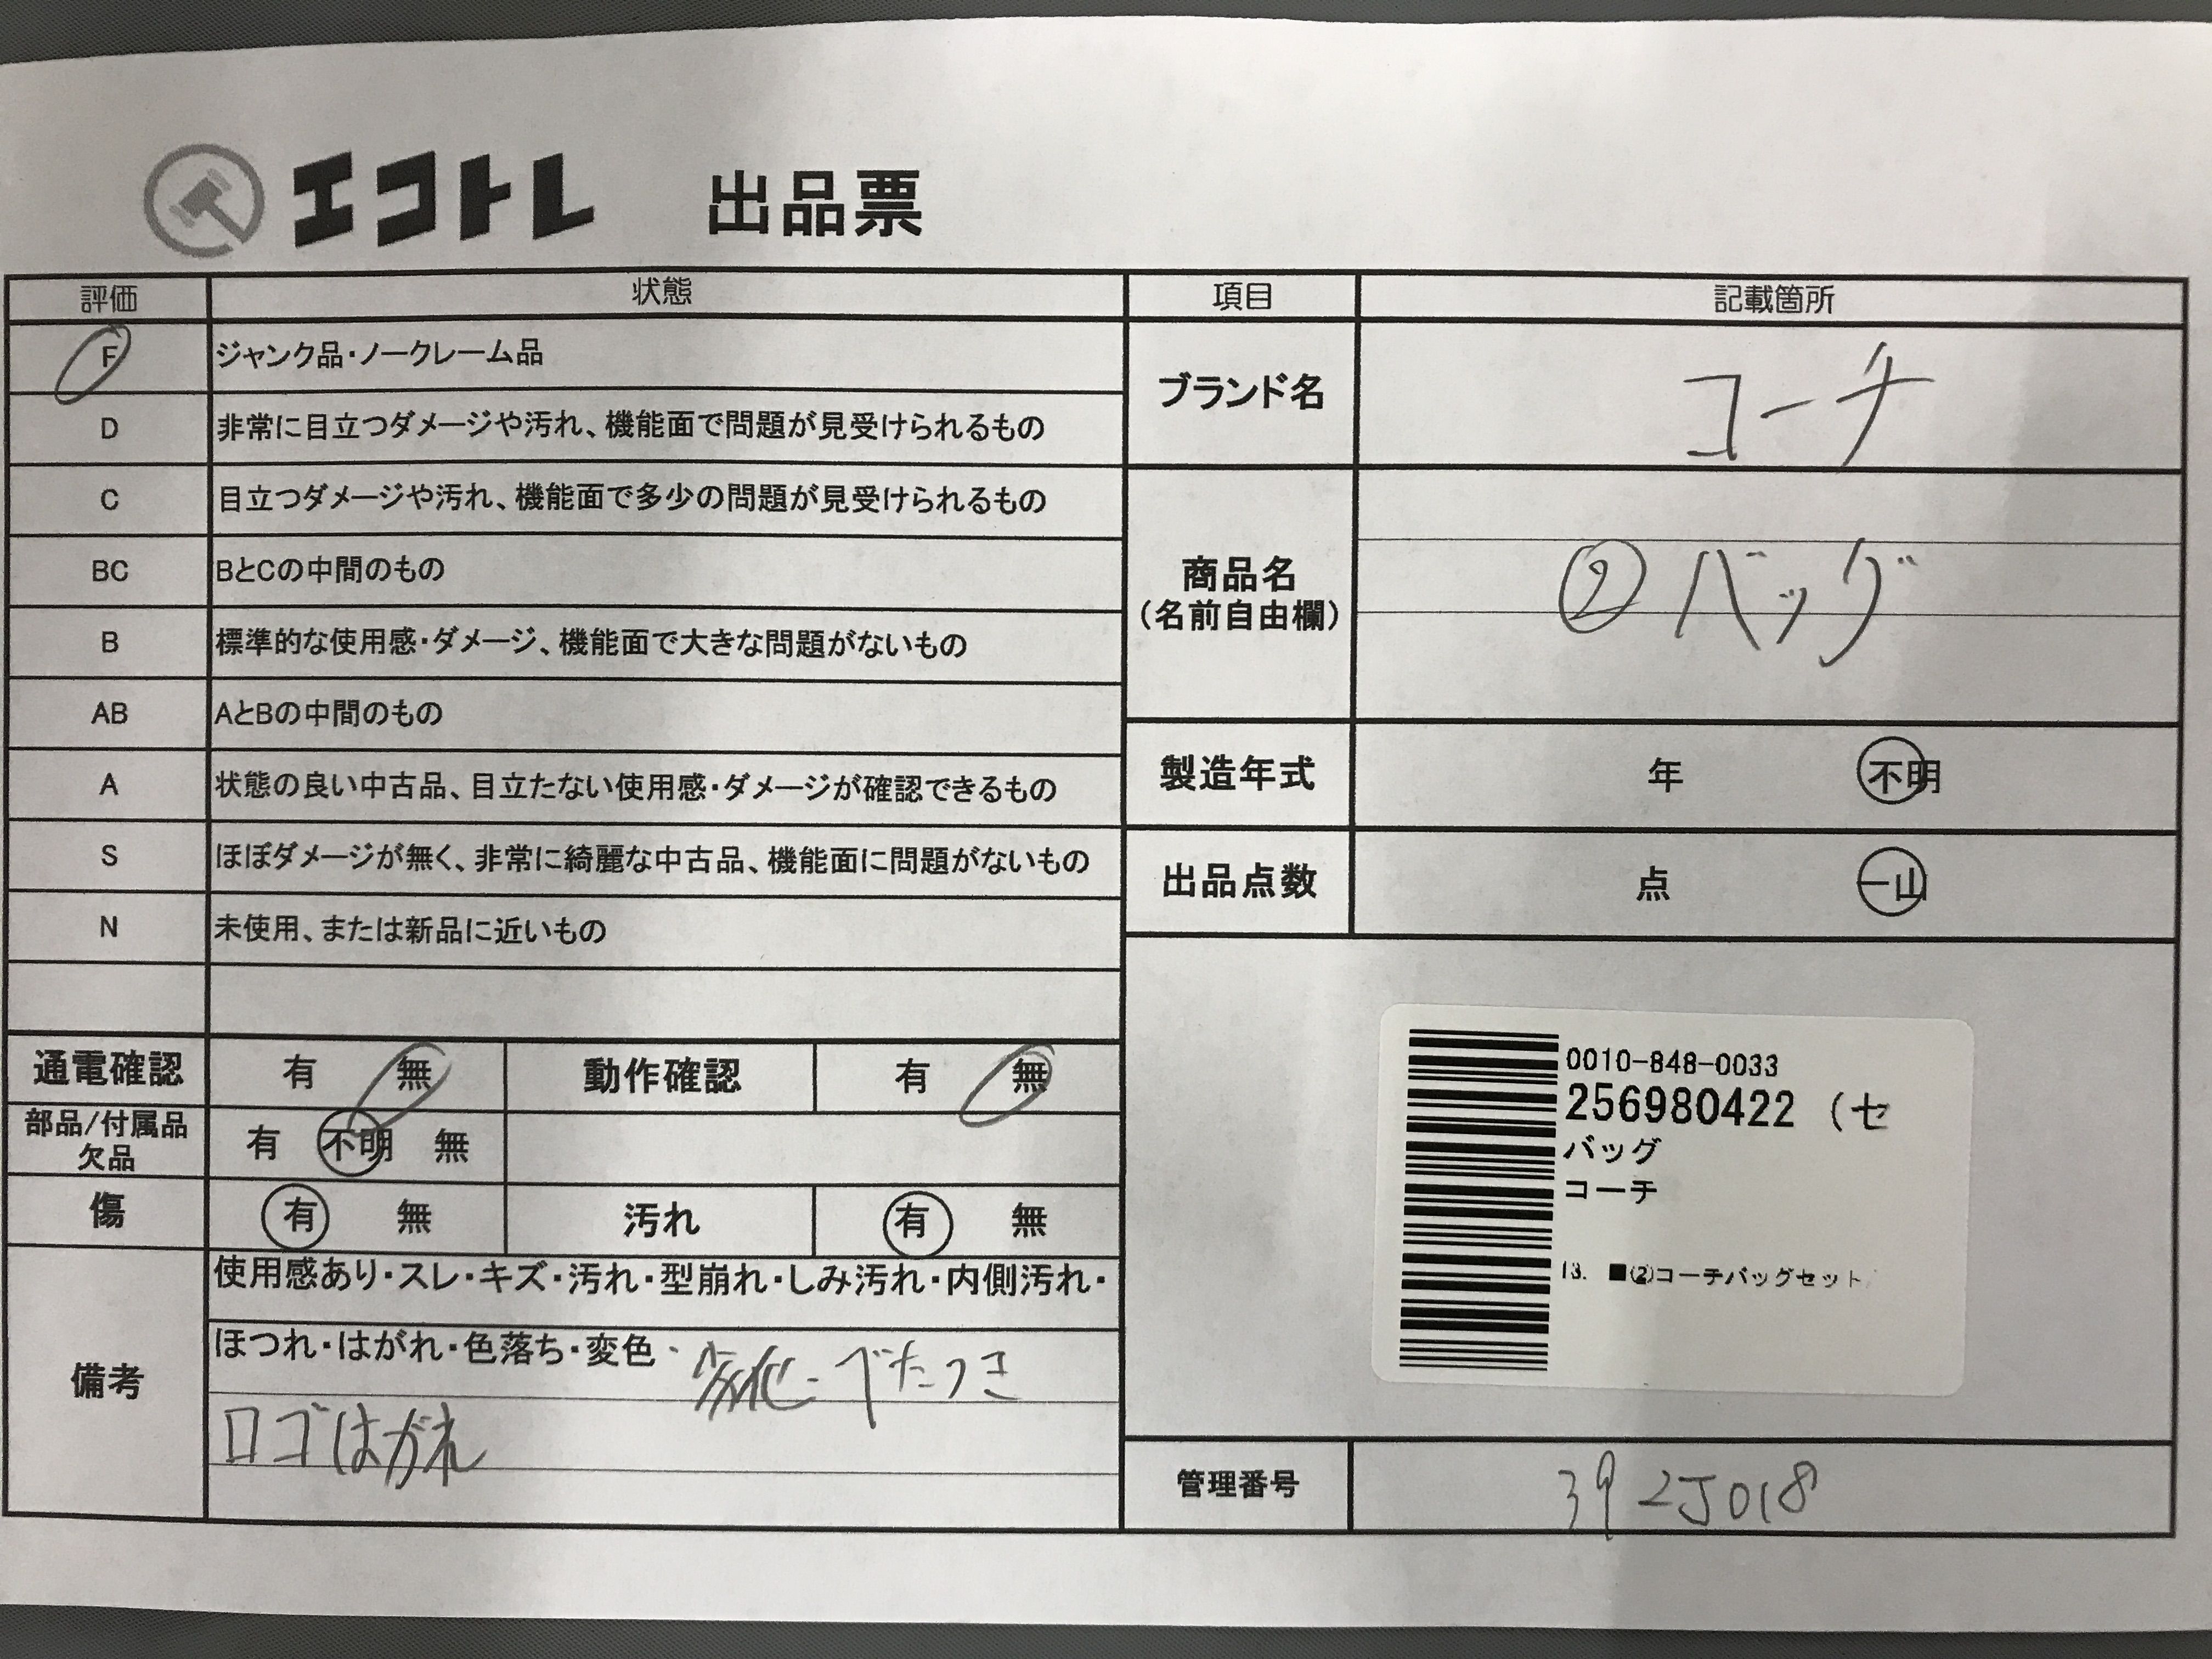 エコトレ 出品票
評価 状態 項目 記載箇所
F ジャンク品・ノークレーム品
D 非常に目立つダメージや汚れ、機能面で問題が見受けられるもの
C 目立つダメージや汚れ、機能面で多少の問題が見受けられるもの
BC BとCの中間のもの
B 標準的な使用感・ダメージ、機能面で大きな問題がないもの
AB AとBの中間のもの
A 状態の良い中古品、目立たない使用感・ダメージが確認できるもの
S ほぼダメージが無く、非常に綺麗な中古品、機能面に問題がないもの
N 未使用、または新品に近いもの
通電確認 有 無 動作確認 有 無
部品/付属品
欠品
有 不明 無
傷 有 無 汚れ 有 無
備考
使用感あり・スレ・キズ・汚れ・型崩れ・しみ汚れ・内側汚れ・
ほつれ・はがれ・色落ち・変色・ べたつき
ロゴはがれ
ブランド名 コーチ
商品名
(名前自由欄)
②バッグ
製造年式 年 不明
出品点数 点 一山
0010-848-0033
256980422 (セ
バッグ
コーチ
13. ■⑵コーチバッグセット
管理番号 392J018